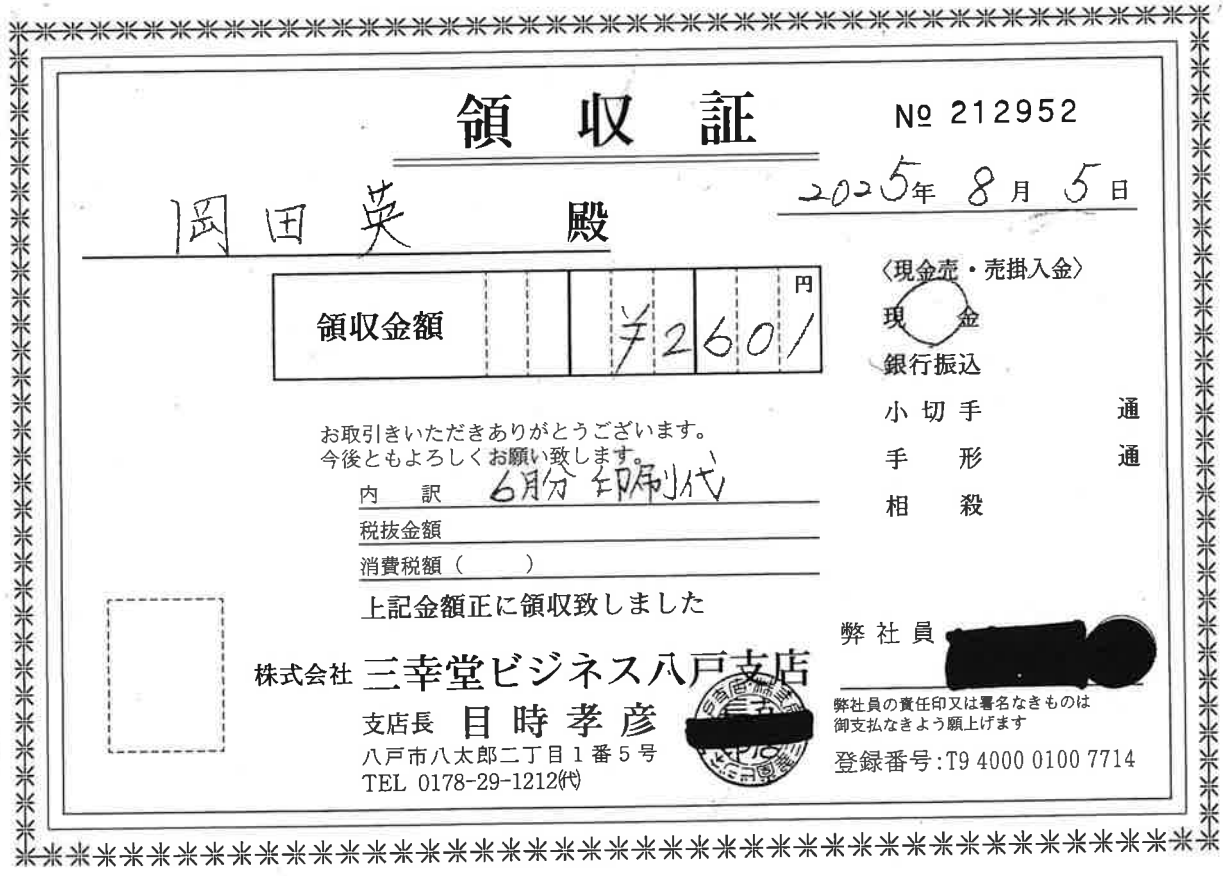 領収証
№ 212952
2025年 8月 5日
岡田英 殿
領収金額 ¥2601円
〈現金売・売掛入金〉
現金
銀行振込
小切手 通
手形 通
相殺
お取引きいただきありがとうございます。
今後ともよろしくお願い致します。
内訳 6月分 印刷代
税抜金額
消費税額( )
上記金額正に領収致しました
株式会社 三幸堂ビジネス八戸支店
支店長 目時孝彦
八戸市八太郎二丁目1番5号
TEL 0178-29-1212㈹
弊社員
弊社員の責任印又は署名なきものは
御支払なきよう願上げます
登録番号:T9 4000 0100 7714